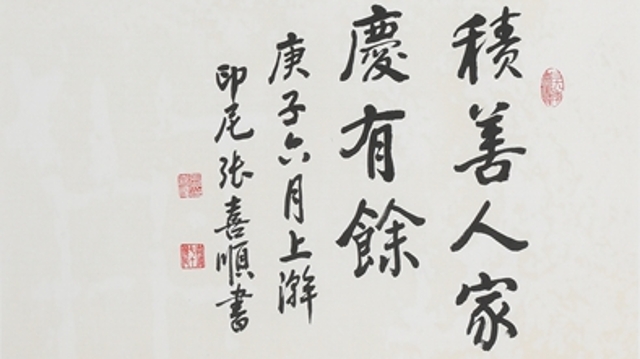 積善人家
慶有餘
庚子六月上澣
印尾张喜順書